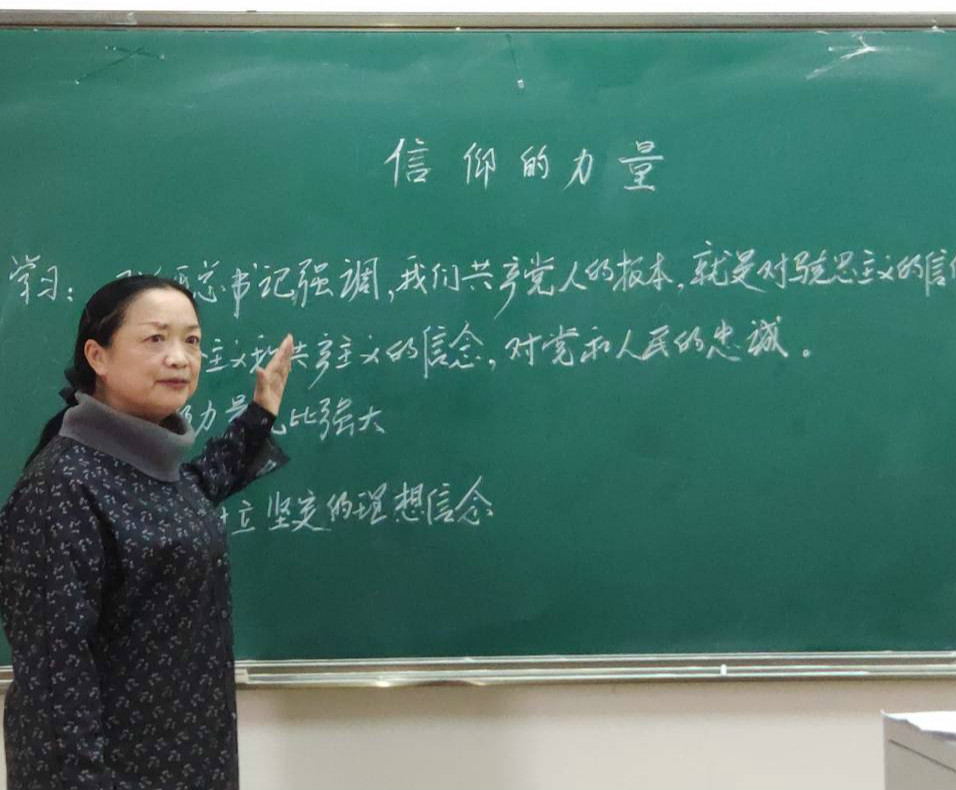 信仰的力量
学习：总书记强调，我们共产党人的根本，就是对马克思主义的信
主义和共产主义的信念，对党和人民的忠诚。
力量 比强大
立坚定的理想信念